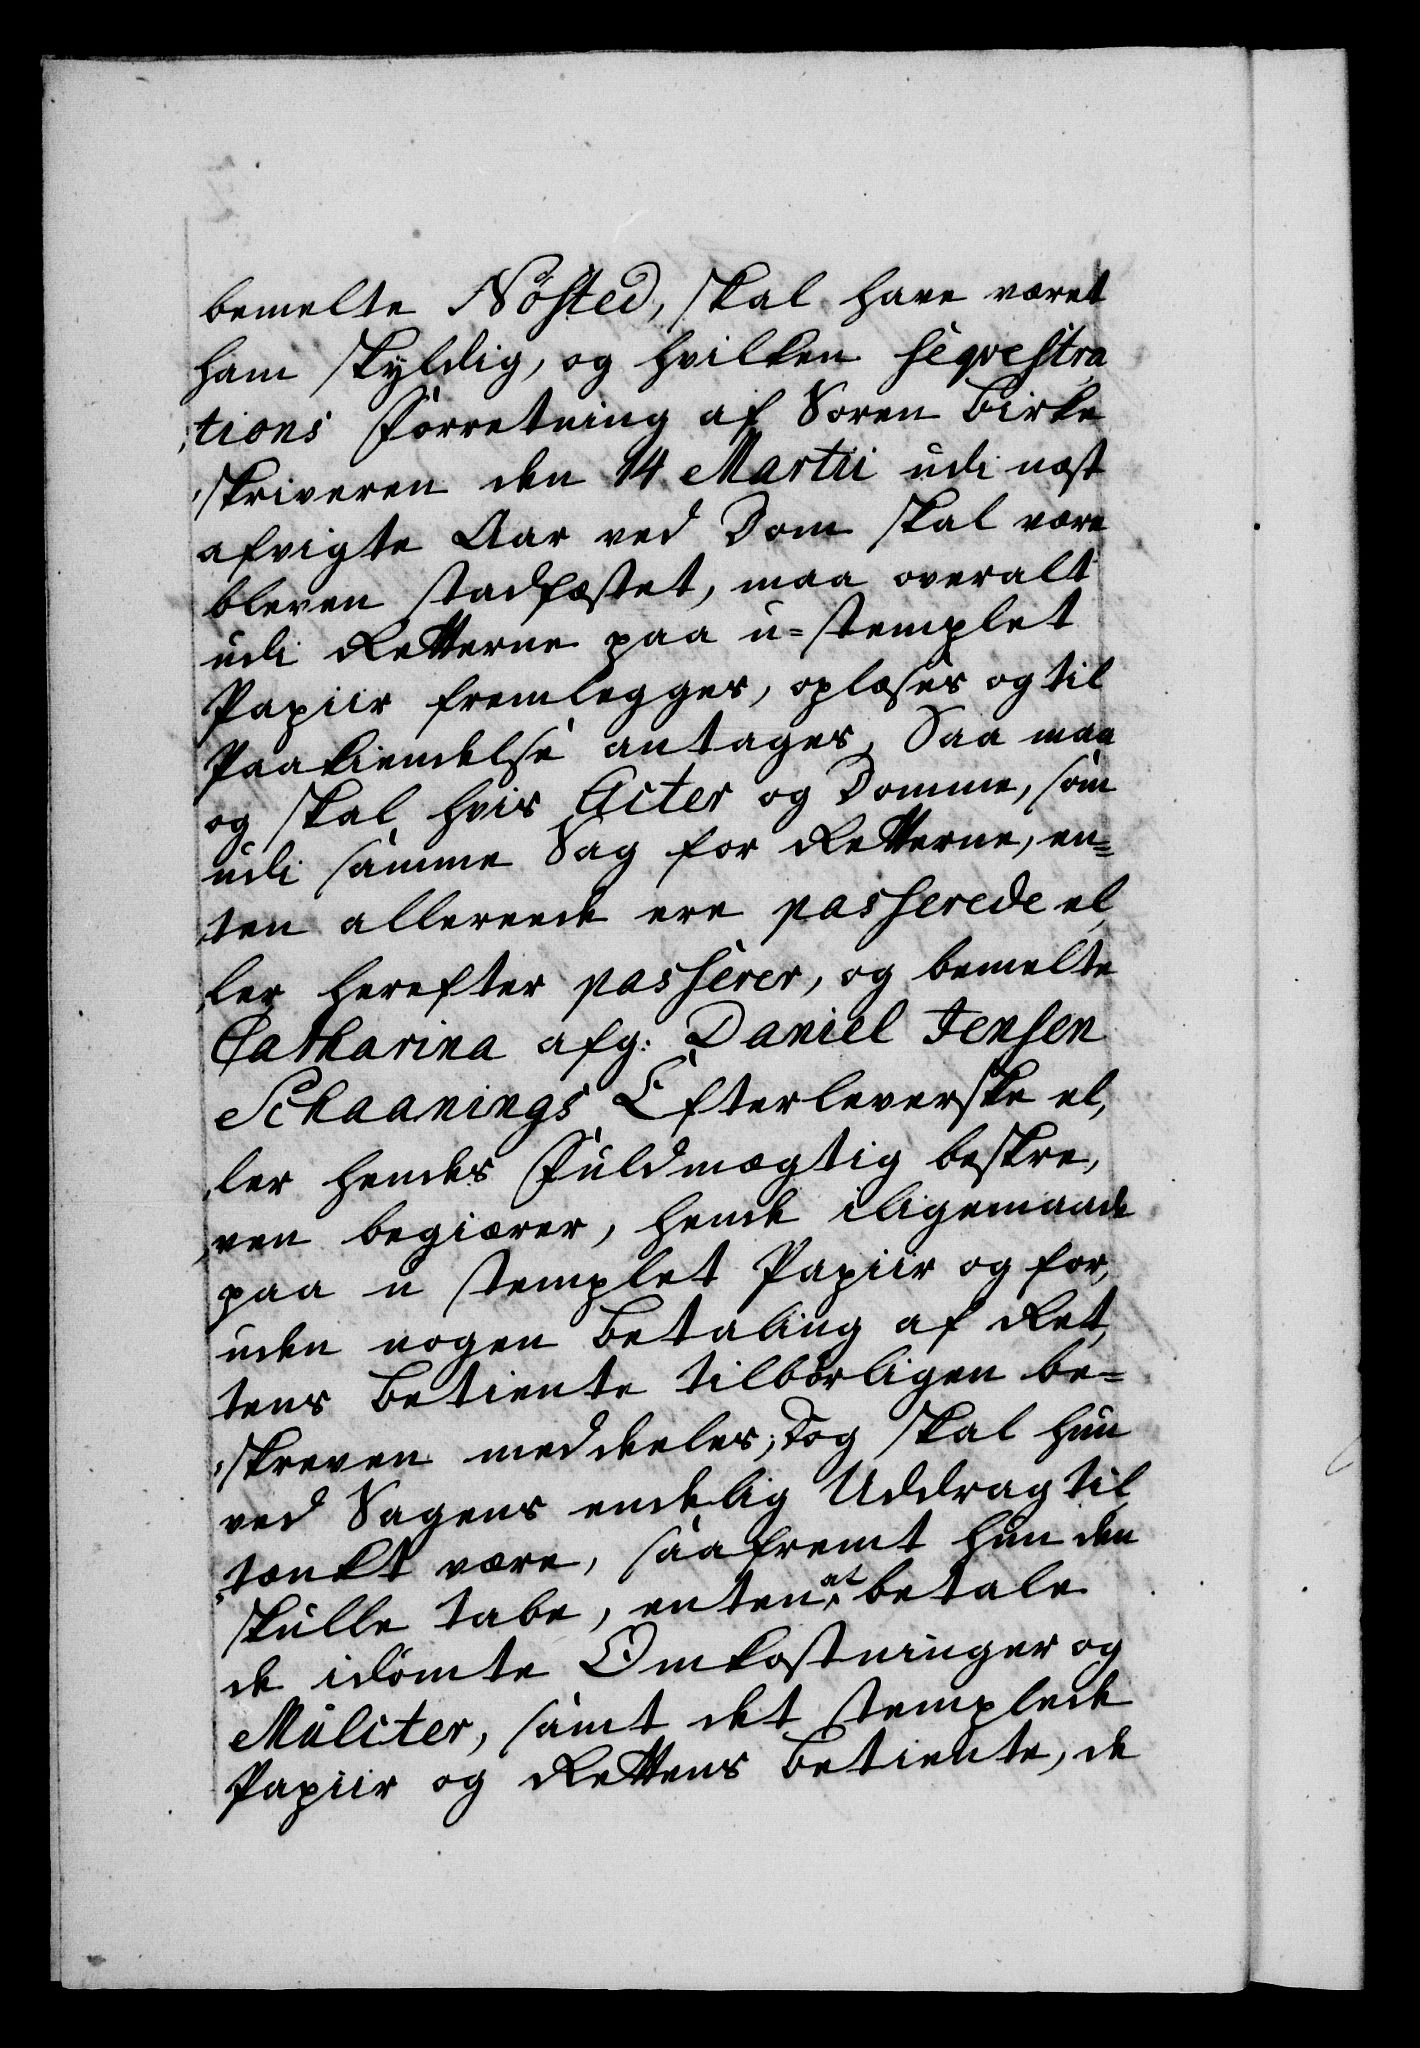 bemelte Nösted, skal have været
ham skÿldig, og hvilken seqvestra
tions Forretning af Soren Birke
skriveren den 14 Martii udi næst
afvigte Aar ved Dom skal være
bleven stadfæstet, maa overalt
udi Retterne paa u-stemplet
Papiir fremlegges, oplæses og til
Paakiendelse antages, Saa maa
og skal hvis Acter og Domme, som
udi samme Sag for Retterne, en=
ten allereede ere passerede el,
ler herefter passerer, og bemelte
Catharina afg: Daniel Jensen
Schaanings Efterleverske el,
ler hendes Fuldmægtig beskre,
ven begiærer, hende iligemaade
paa u stemplet Papiir og for,
uden nogen Betaling af Ret,
tens Betiente tilbørligen be=
skreven meddeeles; Dog skal hun
ved Sagens endelig Uddrag til,
tænkt være, saafremt hun den
skulle tabe, enten at betale
de idömte Omkostninger og
Mulcter, samt det stemplede
Papiir og Rettens Betiente, de